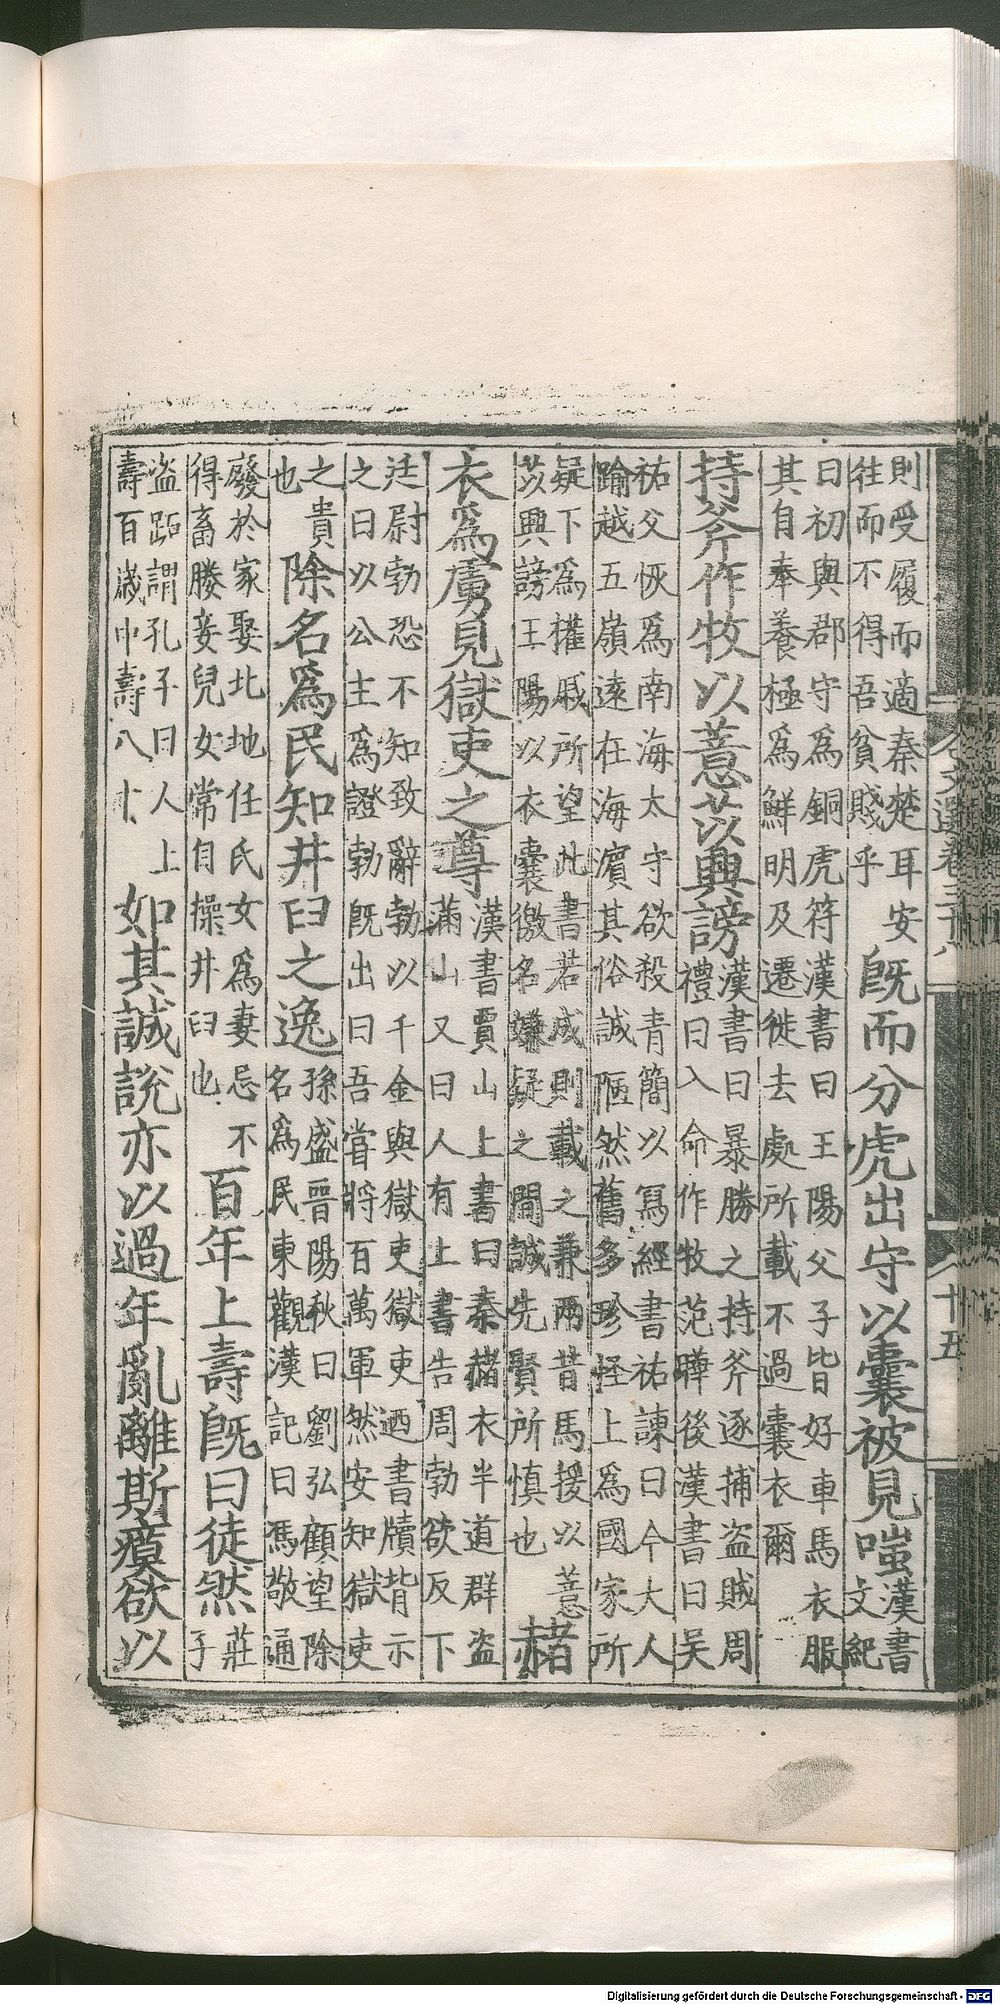 文選卷三十八
十五
則受履而適秦楚耳安
往而不得吾貧賤乎
既而分虎出守以囊被見嗤
漢書
文紀
曰初與郡守爲銅虎符漢書曰王陽父子皆好車馬衣服
其自奉養極爲鮮明及遷徙去處所載不過囊衣爾
持斧作牧以薏苡興謗
漢書曰暴勝之持斧逐捕盜賊周
禮曰入命作牧范曄後漢書曰吳
祐父恢爲南海太守欲殺青簡以冩經書祐諫曰今大人
踰越五嶺遠在海濵其俗誠陋然舊多珍怪上爲國家所
疑下爲權戚所望此書若成則載之兼兩昔馬援以薏
苡興謗王陽以衣囊徼名嫌疑之間誠先賢所慎也
赭
衣爲虜見獄吏之尊
漢書賈山上書曰秦赭衣半道群盜
滿山又曰人有上書告周勃欲反下
廷尉勃恐不知致辭勃以千金與獄吏獄吏迺書牘背示
之曰以公主爲證勃既出曰吾嘗將百萬軍然安知獄吏
之貴
也
除名爲民知井臼之逸
孫盛晉陽秋曰劉弘顧望除
名爲民東觀漢記曰馮敬通
廢於家娶北地任氏女爲妻忌不
得畜媵妾兒女常自操井臼也
百年上壽既曰徒然
莊
子
盜跖謂孔子曰人上
壽百歲中壽八十
如其誠說亦以過年亂離斯瘼欲以
Digitalisierung gefördert durch die Deutsche Forschungsgemeinschaft - DFG